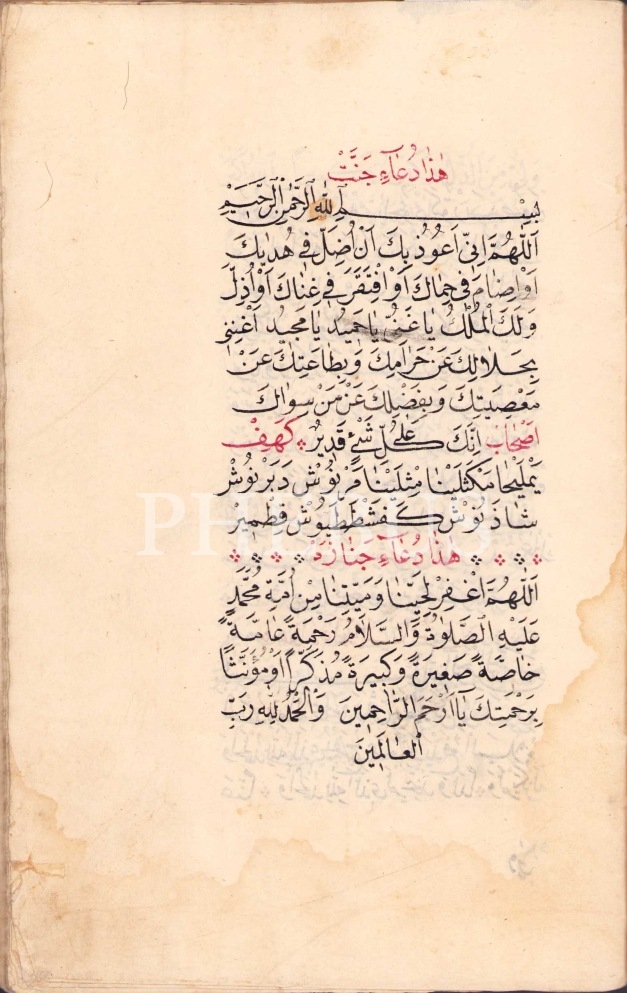 هٰذَا دُعَآءِ جَنَّتْ
بِسْمِ اللّٰهِ الرَّحْمٰنِ الرَّحِيمِ
اَللّٰهُمَّ اِنِّى اَعُوذُ بِكَ اَنْ اُضِلَّ فِى هُدٰيكَ
اَوْ اِضَامَ فِى حِمَاكَ اَوْ افْتَقَرَ فِى غِنَاكَ اَوْ اُذِلَّ
وَلَكَ الْمُلْكُ يَا غَنِىُّ يَا حَمِيدُ يَا مَجِيدُ اَغْنِنِى
بِحَلَالِكَ عَنْ حَرَامِكَ وَبِطَاعَتِكَ عَنْ
مَعْصِيَتِكَ وَبِفَضْلِكَ عَنْ مَنْ سِوَاكَ
اِنَّكَ عَلٰى كُلِّ شَىْءٍ قَدِيرٌ اَصْحَابِ كَهِفْ
يَمْلِيخَا مَكْثَلِينَا مِثْلِينَا مَرْنُوُشْ دَبَرْنُوُشْ
شَاذَنُوُشْ كَفَشْطَطَيُوُشْ قِطْمِيرْ
هٰذَا دُعَآءِ جَنَازَهْ
اَللّٰهُمَّ اغْفِرْ لِحَيِّنَا وَمَيِّتِنَا مِنْ اُمَّةِ مُحَمَّدٍ
عَلَيْهِ الصَّلٰوةُ وَالسَّلَامُ رَحْمَةً عَامَّةً
خَاصَّةً صَغِيرَةً وَكَبِيرَةً مُذَكَّرًا اَوْ مُؤَنَّثًا
بِرَحْمَتِكَ يَآ اَرْحَمَ الرَّاحِمِينَ وَالْحَمْدُ لِلّٰهِ رَبِّ
الْعَالَمِينَ